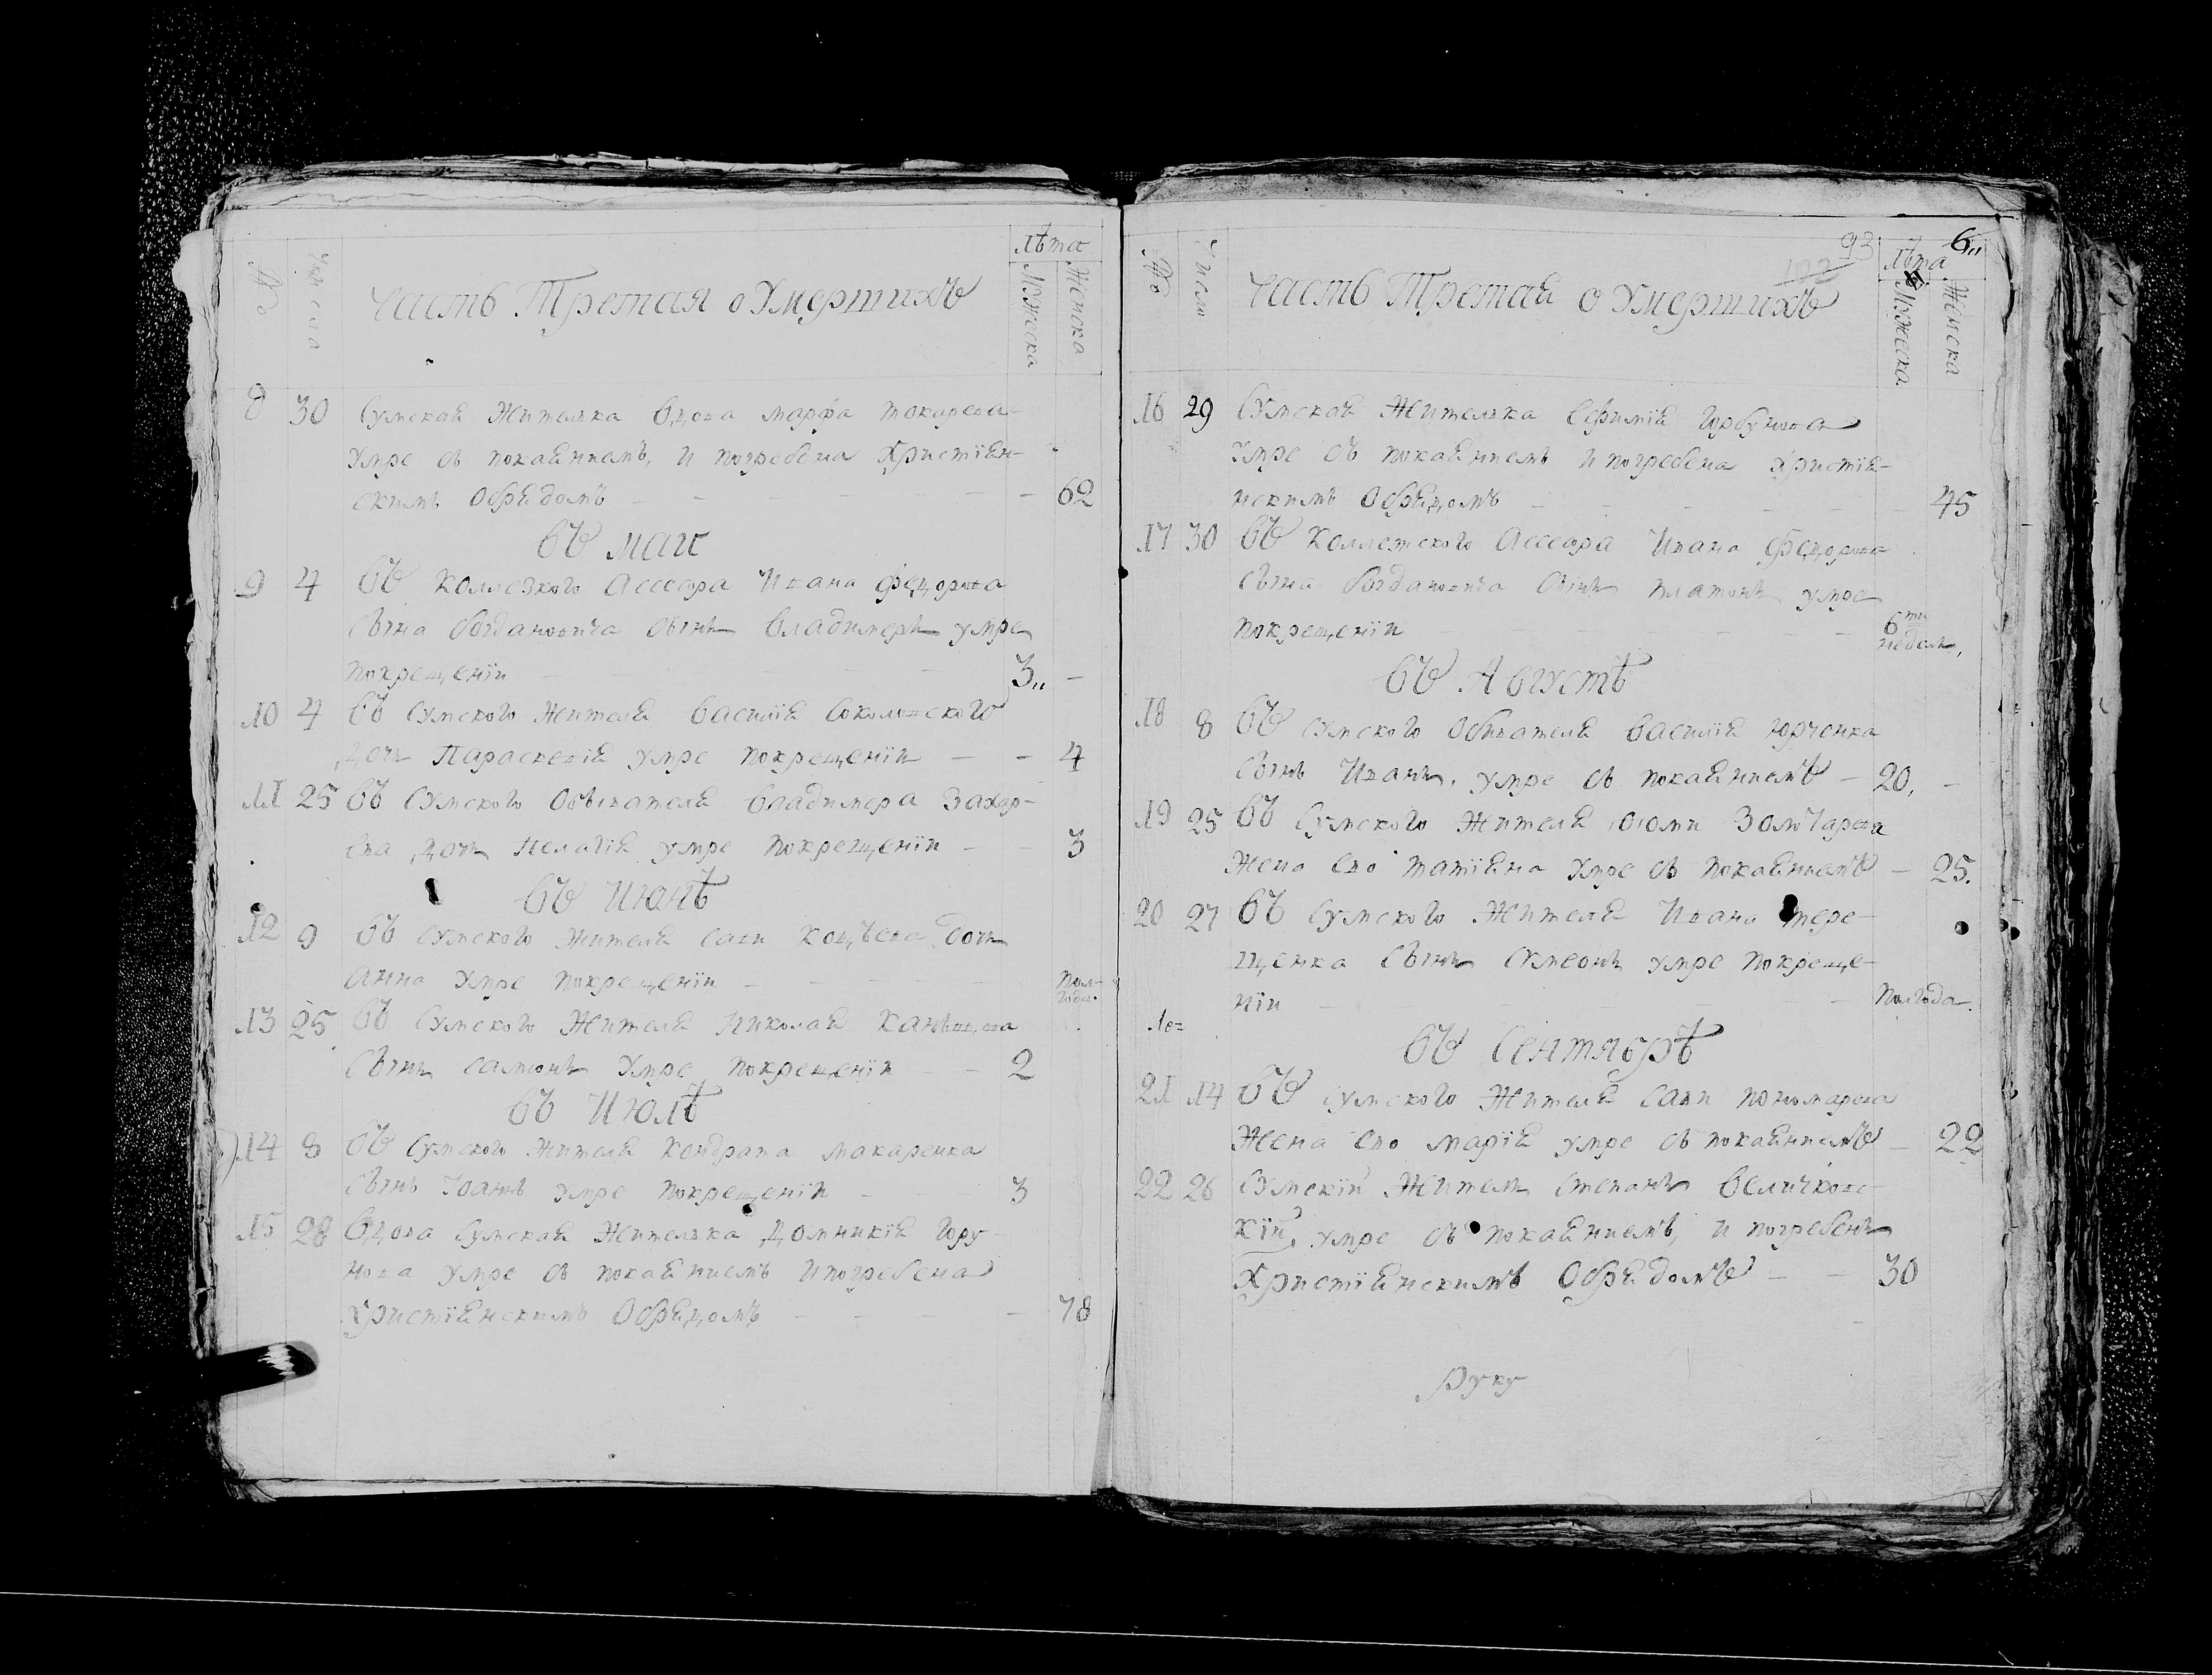 №
числа
Часть Третая о Умершихъ
Лѣта
Мужеска
Женска
8 30 Сумская Жителка вдова марфа токарева
умре съ покаяниемъ, и погребена Христiян-
скимъ Обрядомъ — 62
въ маи
9 4 въ Коллезкого Ассесора Ивана федорова
сына богдановича сынъ владимеръ умре
покрещенiи — 3 —
10 4 въ Сумского жителя василiя соколовского
дочь Параскевiя умре покрещенiи — 4
11 25 въ Сумского Обывателя владимера Захар-
ева дочь пелагiя умре покрещенiи — 3
въ июнѣ
12 9 въ Сумского жителя савы дочь
анна умре покрещенiи — пол-
года.
13 25 въ Сумского Жителя николая
сынъ самсонъ умре покрещенiи — 2
въ июлѣ
14 8 въ Сумского жителя кондрата макаренка
сынъ Iоаннъ умре покрещенiи — 3
15 28 вдова сумская жителка домникiя гору-
нова умре съ покаяниемъ ипогребена
христiянскимъ Обрядомъ — 78
№
Число
93
102
6
Часть Третая о Умершихъ
Лѣта
Мужеска
Женска
16 29 Сумская Жителка Ефимiя горбунова
умре съ покаяниемъ ипогребена христiя-
нскимъ Обрядомъ — 45
17 30 въ Коллежского Ассесора Ивана федорова
сына богдановича сынъ платонъ умре
покрещенiи — 6ти недель,
въ Августѣ
18 8 въ сумского Обивателя василiя юрченка
сынъ Иванъ, умре съ покаяниемъ — 20, —
19 25 въ Сумского Жителя фомы Золотарева
жена ево татiяна умре съ покаяниемъ — 25.
20 27 въ Сумского Жителя Ивана тере-
щенка сынъ Симеонъ умре покреще-
нiи — полгода.
въ Сентябрѣ
21 14 въ сумского Жителя савы пономарева
Жена ево марiя умре съ покаяниемъ — 22
22 26 Сумскiй Житель степанъ величковс-
кiй, умре съ покаяниемъ, и погребенъ
Христiянскимъ Обрядомъ — 30
руку